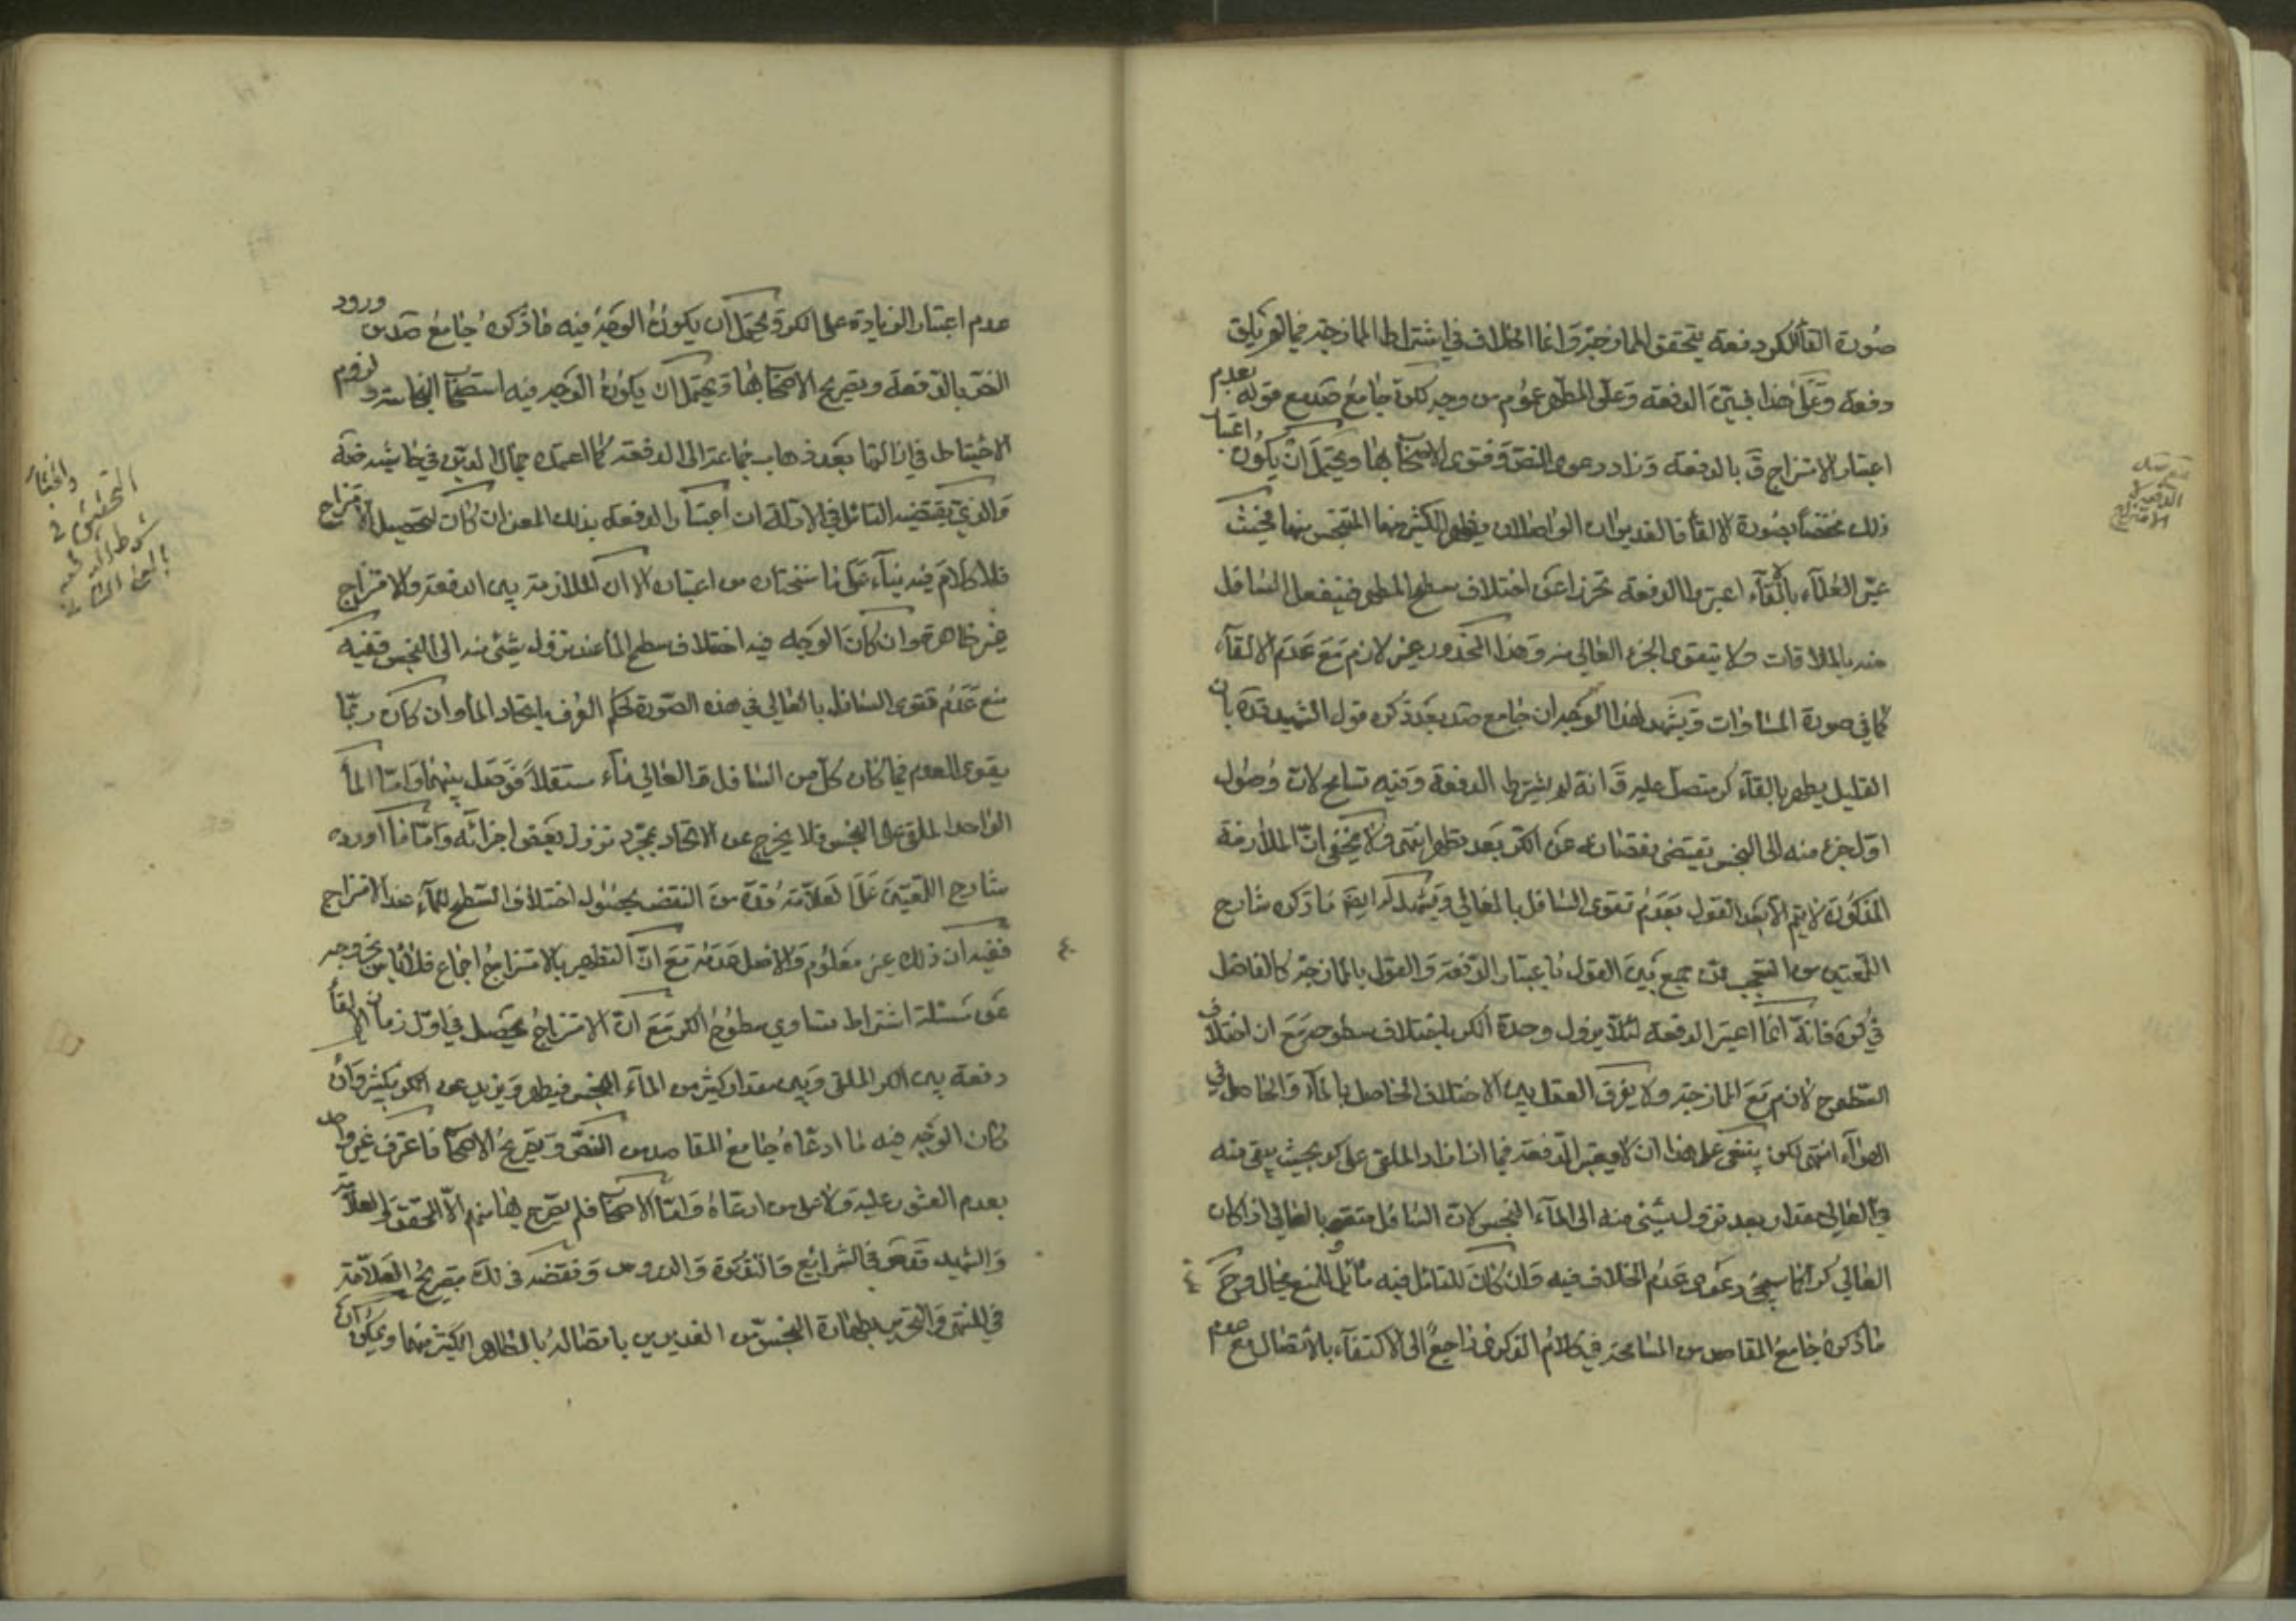 صورة القاء الكر دفعة يتحقق الممازجة وانما الخلاف في اشتراط الممازجة فيما لم يلق
دفعة وعلى هذا فبين الدفعة وعلى المطهر عموم من وجه لكن جامع صد مع قوله بعدم
اعتبار الامتزاج ق بالدفعة وزاد دعوى النص وفتوى الاصحاب بها ويحتمل ان يكون اعتبا
ذلك مختصا بصورة الالقاء فالغديران الواصلان يطهر الكثير منهما المتنجس منهما فحيث
عبر العلماء بالالقاء اعتبروا الدفعة تحرزا عن اختلاف سطح المطهر فينفعل السافل
منه بالملاقات ولا يتقوى الجزء العالي منه وهذا المحذور غير لازم مع عدم الالقاء
كما في صورة المساوات ويشهد لهذا الوجه ان جامع صد بعد ذكره قول الشهيد قده بان
القليل يطهر بالقاء كر متصل عليه ق انه لم يشترط الدفعة وفيه تسامح لان وصول
اول جزء منه الى النجس يقتضي نقصانه عن الكر بعد تطهر انتهى ولا يخفى ان الملازمة
المذكورة لا يتم الا بعد القول بعدم تقوى السافل بالعالي ويشهد له ايضا ما ذكره شارح
اللمعتين من التعجب ممن جمع بين القول باعتبار الدفعة والقول بالممازجة كالفاضل
في كره فانه انما اعتبر الدفعة لئلا يزول وحدة الكر باختلاف سطوحه مع ان اختلاف
السطوح لازم مع الممازجة ولا يفرق العقل بين الاختلاف الحاصل بالماء والحاصل في
الهواء انتهى لكن ينبغي على هذا ان لا يعتبر الدفعة فيما اذا زاد الملقى على كر بحيث يبقى منه
في العالي مقدار بعد نزول شيئ منه الى الماء النجس لان السافل متقو بالعالي اذا كان
العالي كرا كما سيجئ دعوى عدم الخلاف فيه وان كان للتامل فيه مائلا للمنع مجال وح
ما ذكره جامع المقاصد من المسامحة في كلام الذكرى راجع الى الاكتفاء بالاتصال مع عدم
عدم اعتبار الزيادة على الكر ويحتمل ان يكون الوجه فيه ما ذكره جامع صد من ورود
النص بالدفعة وتصريح الاصحاب بها ويحتمل ان يكون الوجه فيه استصحاب النجاسة ولزوم
الاحتياط في ازالتها بعد ذهاب جماعة الى الدفعة كما اعتمده جمال الدين في حاشيته ضة
والذي يقتضيه التامل في الادلة ان اعتبار الدفعة بذلك المعنى ان كان لتحصيل الامتزاج
فلا كلام فيه بناء على ما سنختاره من اعتباره الا ان الملازمة بين الدفعة والامتزاج
غير ظاهرة وان كان الوجه فيه اختلاف سطح الماء عند نزول شيئ منه الى النجس ففيه
منع عدم تقوى السافل بالعالي في هذه الصورة لحكم العرف باتحاد الماء وان كان ربما
يقوى العدم فيما كان كل من السافل والعالي ماء مستقلا فوصل بينهما واما الماء
الواحد الملقى على النجس فلا يخرج عن الاتحاد بمجرد نزول بعض اجزائه واما ما اورده
شارح اللمعتين على العلامة قده من النقض بحصول اختلاف السطح للماء عند الامتزاج
ففيه ان ذلك غير معلوم والاصل عدمه مع ان التطهير بالامتزاج اجماع فلا باس بخروجه
عن مسئلة اشتراط تساوي سطوح الكر مع ان الامتزاج يحصل في اول زمان الالقاء
دفعة بين الكر الملقى وبين مقدار كثير من الماء النجس فيطهر ويزيد عن الكر بكثير وان
كان الوجه فيه ما ادعاه جامع المقاصد من النص وتصريح الاصحاب فاعترف غير واحد
بعدم العثور عليه ولا على من ادعاه واما الاصحاب فلم يصرح بها منهم الا المحقق والعلامة
والشهيد قدهم في الشرايع والتذكرة والدروس ونقضه في لك بتصريح العلامة
في المنتهى والتحرير بطهارة النجس من الغديرين باتصاله بالطاهر الكثير منهما ويمكن ان
والمختار
التحقيق في